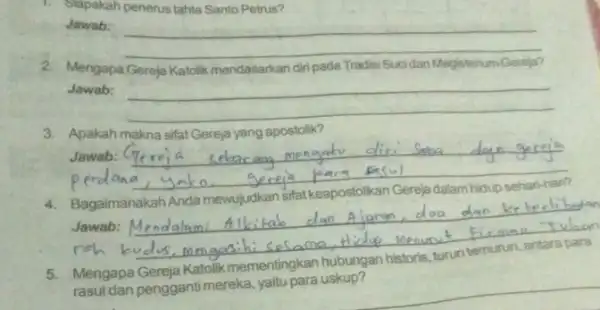 1. Siapakah penerus tahta Santo Petrus?
Jawab:
2. Mengapa Gereja Katolik mendasarkan diri pada Tradisi Suci dan Magisterium Gereja?
Jawab:
3. Apakah makna sifat Gereja yang apostolik?
Jawab: Gereja sekarang mengaku diri sama dgn gereja
perdana, yako. gereja para rasul
4. Bagaimanakah Anda mewujudkan sifat keapostolikan Gereja dalam hidup sehari-hari?
Jawab: Mendalami Alkitab dan Ajaran, doa dan keterlibatan
roh kudus, mengasihi sesama, Hidup menurut Firman Tuhan
5. Mengapa Gereja Katolik mementingkan hubungan historis, turun temurun, antara para
rasul dan pengganti mereka, yaitu para uskup?